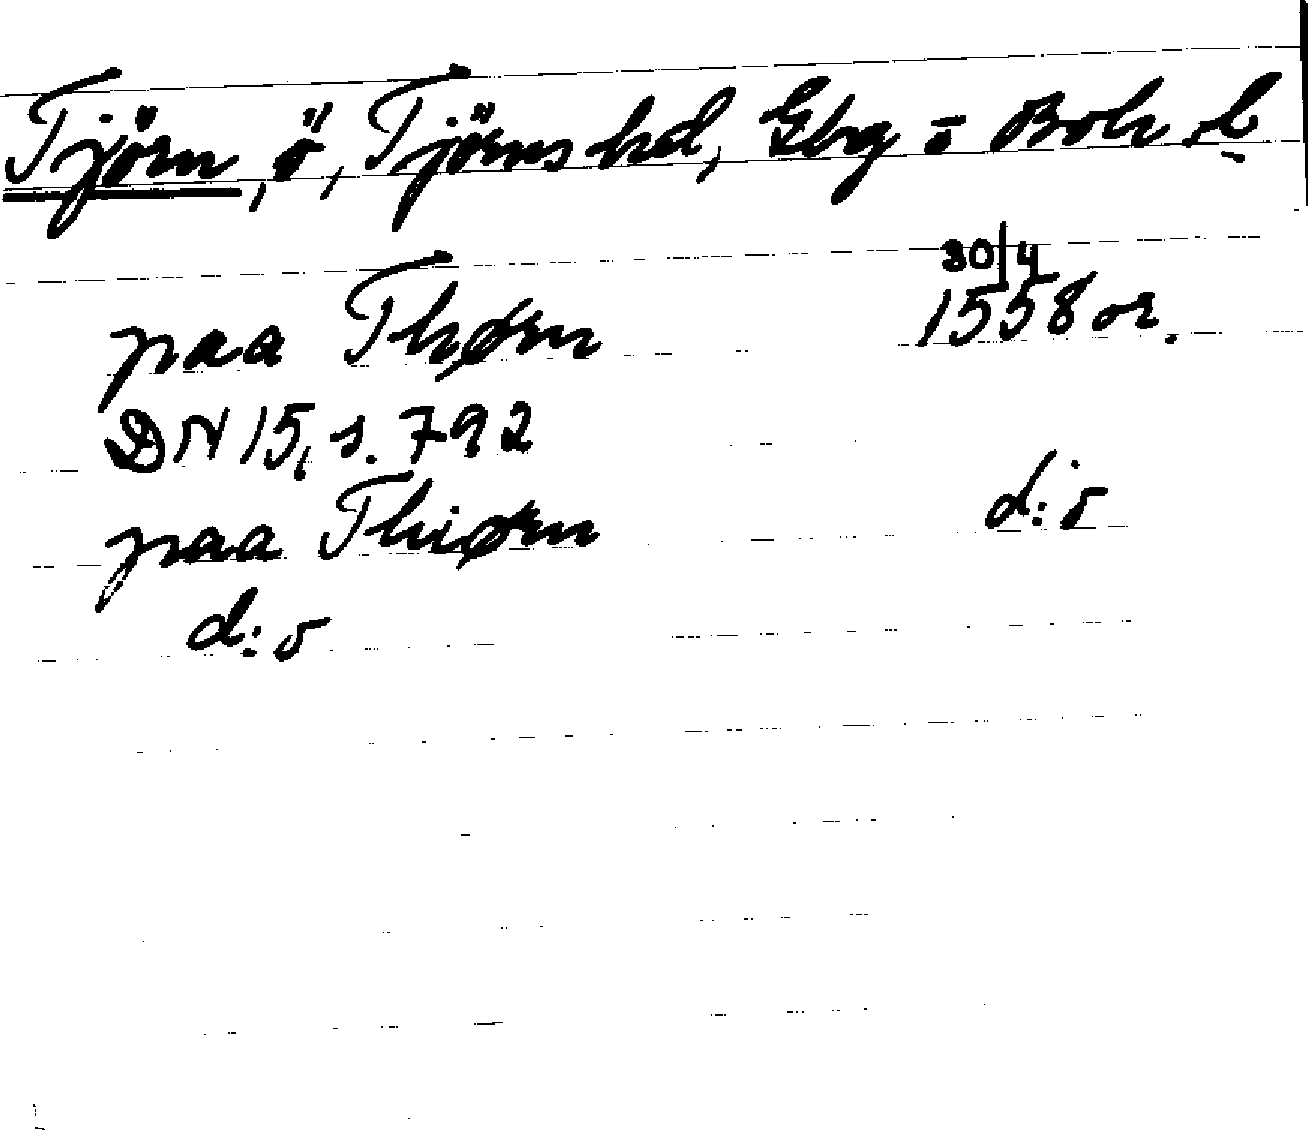 Tjörn, ö, Tjörns hd, Gbg o Boh. l
paa Thørn 30/4 1558 or.
DN 15, s. 792
paa Thiørn d:o
d:o